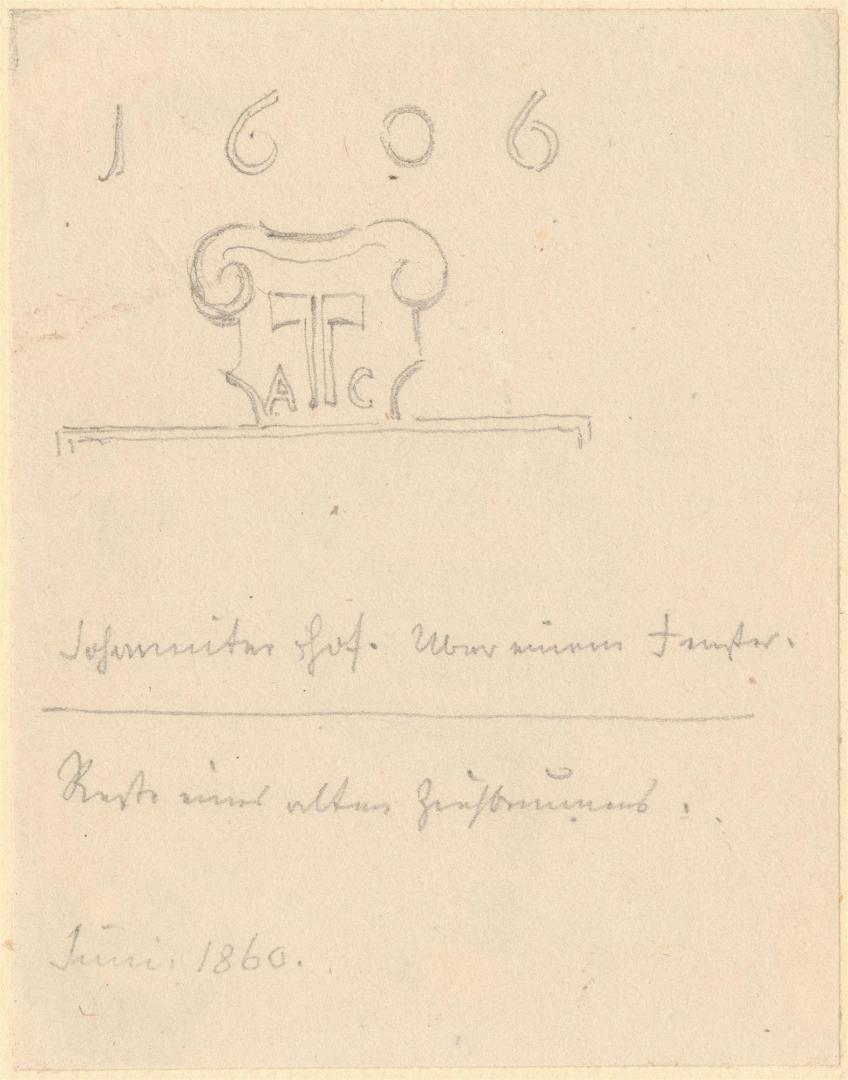 1606
A T C
Johanniter Hof. Uber einem Fenster.
Reste eines alten Ziehbrunnens.
Juni. 1860.